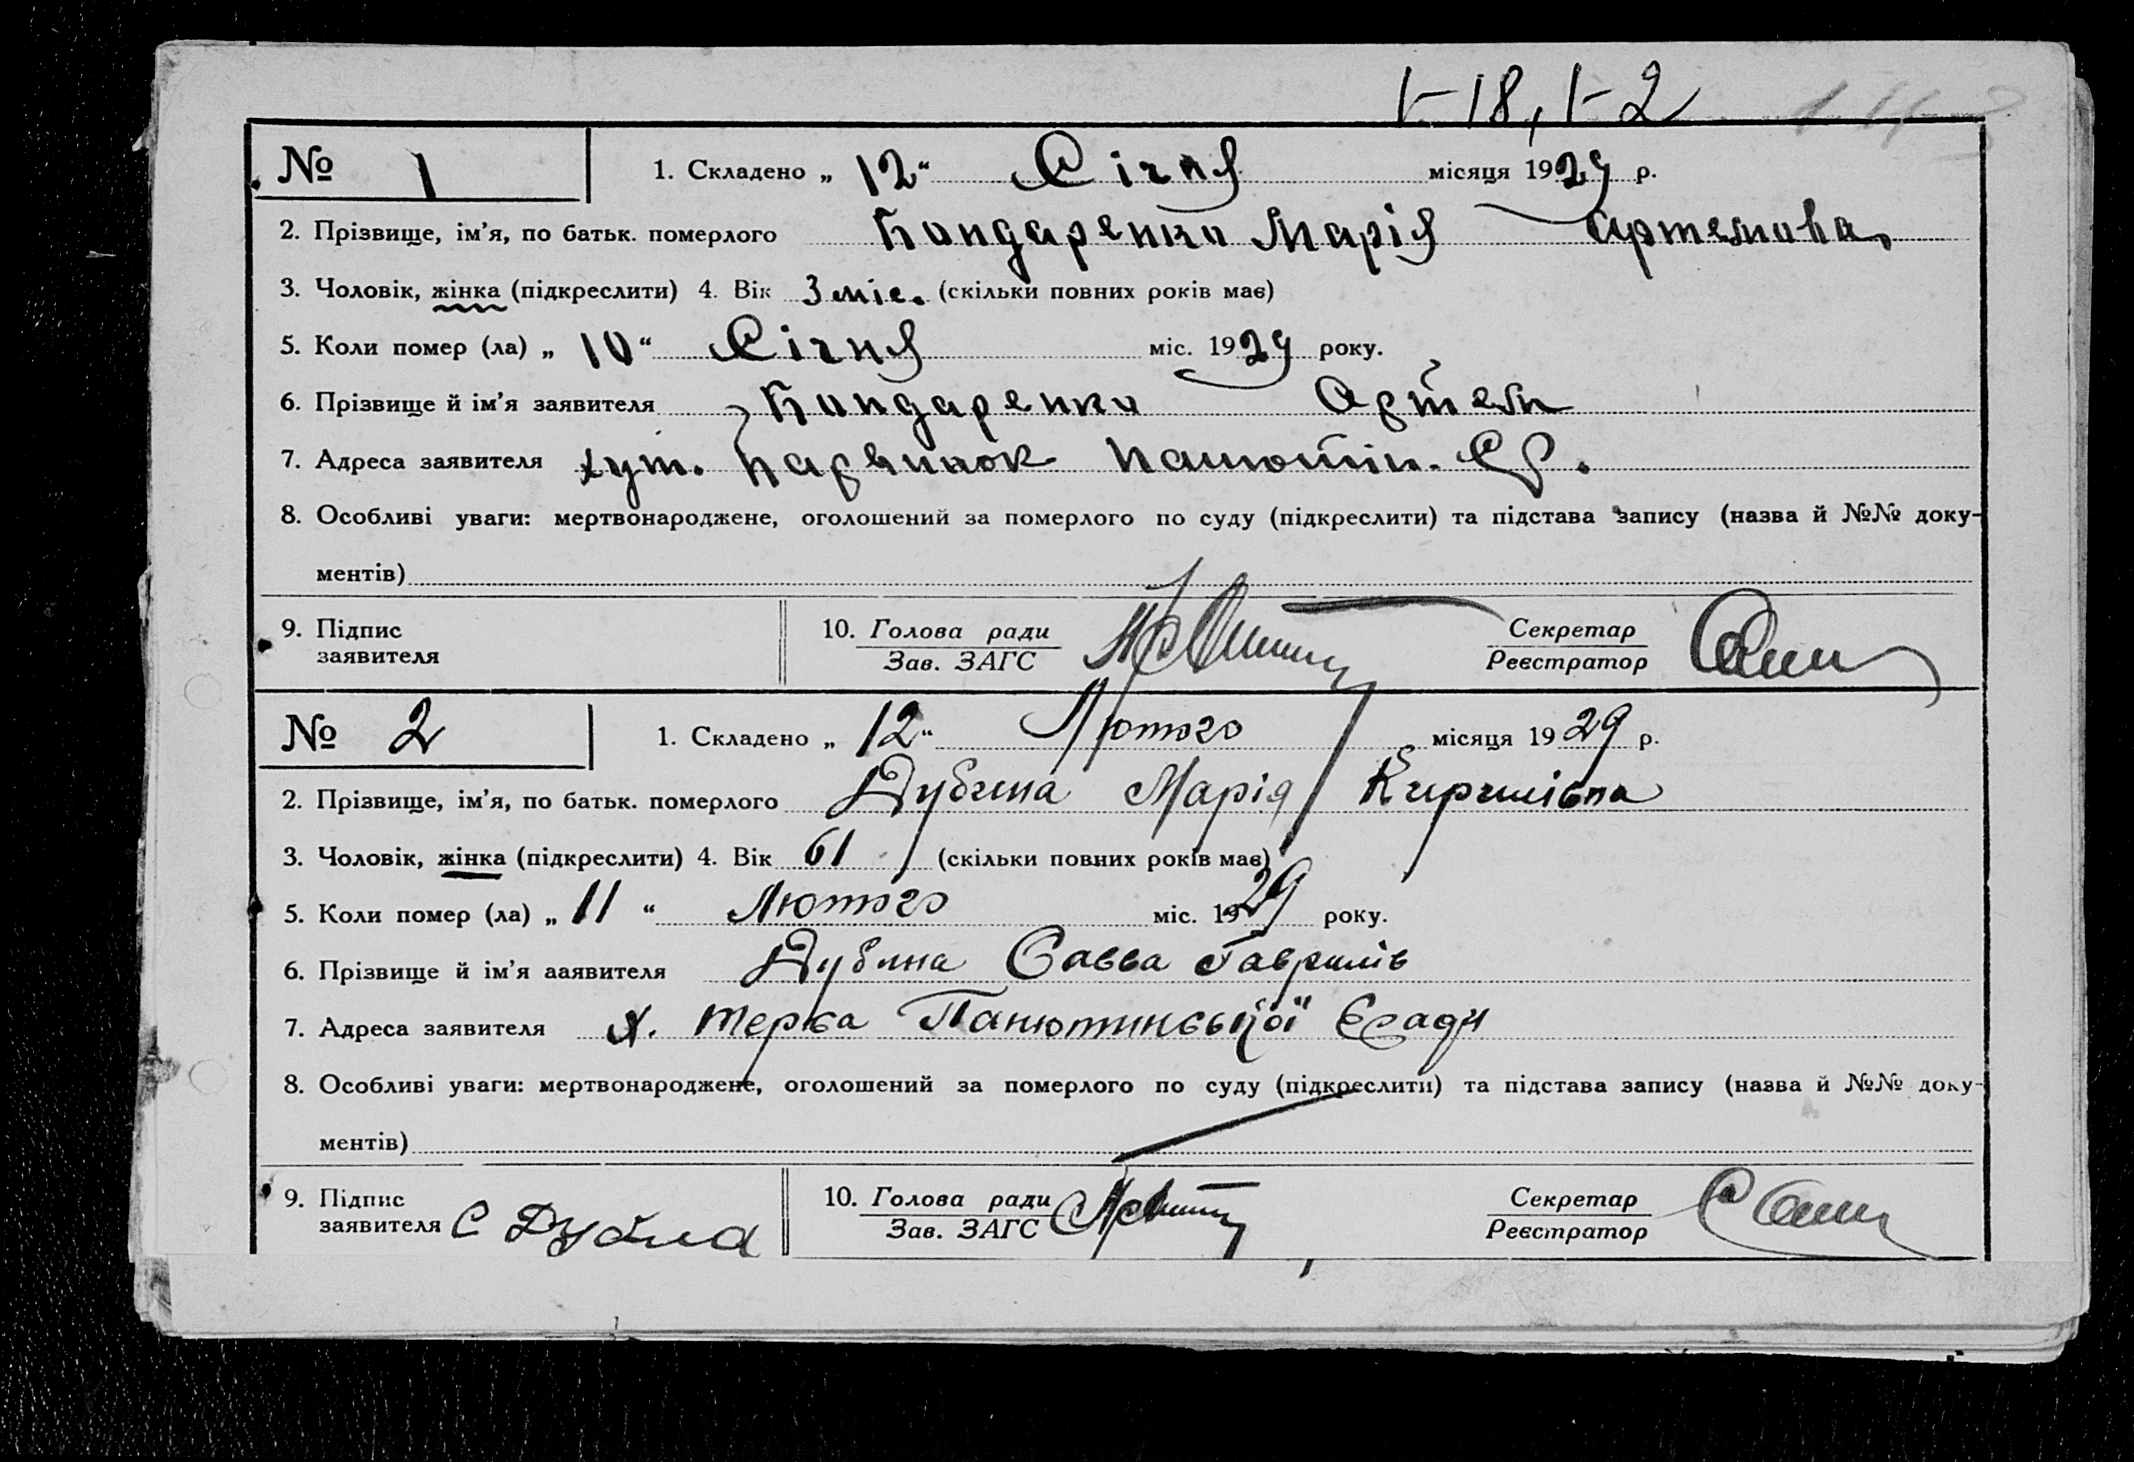 1-18, 1-2
№ 1 1. Складено „ 12 “ Січня місяця 1929 р.
2. Прізвище, ім’я, по батьк. померлого Бондаренко Марія Артемова
3. Чоловік, жінка (підкреслити) 4. Вік 3 міс. (скільки повних років має)
5. Коли помер (ла) „ 10 “ Січня міс. 1929 року.
6. Прізвище й ім’я заявителя Бондаренко Артем
7. Адреса заявителя хут. Панютін. СР.
8. Особливі уваги: мертвонароджене, оголошений за померлого по суду (підкреслити) та підстава запису (назва й №№ доку-
ментів)
9. Підпис заявителя 10. Голова ради Зав. ЗАГС Секретар Реєстратор
№ 2 1. Складено „ 12 “ Лютого місяця 1929 р.
2. Прізвище, ім’я, по батьк. померлого Дубина Марія Кирилівна
3. Чоловік, жінка (підкреслити) 4. Вік 61 (скільки повних років має)
5. Коли помер (ла) „ 11 “ Лютого міс. 1929 року.
6. Прізвище й ім’я ааявителя Дубина Савва Гаврилів
7. Адреса заявителя х. Терса Панютинської С ради
8. Особливі уваги: мертвонароджене, оголошений за померлого по суду (підкреслити) та підстава запису (назва й №№ доку-
ментів)
9. Підпис заявителя С 10. Голова ради Зав. ЗАГС Секретар Реєстратор